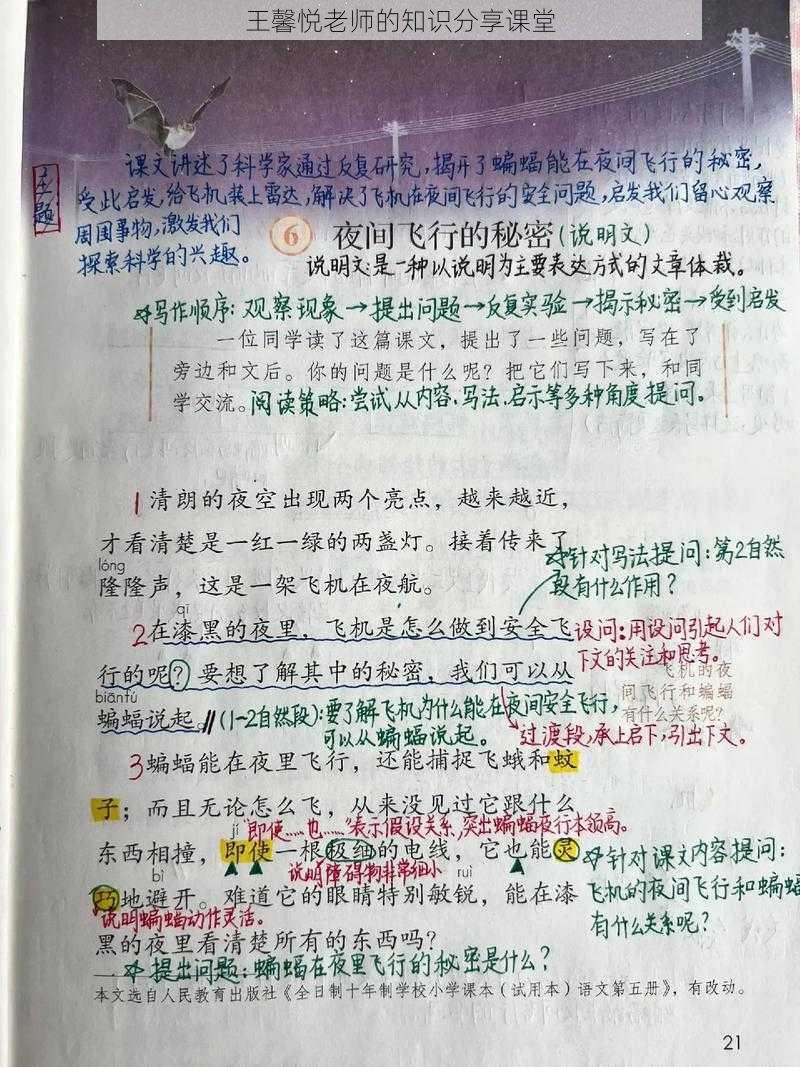 王馨悦老师的知识分享课堂
主题
课文讲述了科学家通过反复研究,揭开了蝙蝠能在夜间飞行的秘密,
受此启发,给飞机装上雷达,解决了飞机在夜间飞行的安全问题,启发我们留心观察
周围事物,激发我们
探索科学的兴趣。
6 夜间飞行的秘密(说明文)
说明文:是一种以说明为主要表达方式的文章体裁。
写作顺序:观察现象→提出问题→反复实验→揭示秘密→受到启发
一位同学读了这篇课文,提出了一些问题,写在了
旁边和文后。你的问题是什么呢?把它们写下来,和同
学交流。阅读策略:尝试从内容、写法、启示等多种角度提问。
1 清朗的夜空出现两个亮点,越来越近,
才看清楚是一红一绿的两盏灯。接着传来了
针对写法提问:第2自然
段有什么作用?
lóng
隆隆声,这是一架飞机在夜航。
qī
2 在漆黑的夜里,飞机是怎么做到安全飞
设问:用设问引起人们对
下文的关注和思考。
行的呢?要想了解其中的秘密,我们可以从
飞机的夜
间飞行和蝙蝠
有什么关系呢?
biānfú
蝙蝠说起。‖(1-2自然段):要了解飞机为什么能在夜间安全飞行,
可以从蝙蝠说起。
过渡段,承上启下,引出下文。
3 蝙蝠能在夜里飞行,还能捕捉飞蛾和蚊
子;而且无论怎么飞,从来没见过它跟什么
jí
“即使……也……”表示假设关系,突出蝙蝠夜行本领高。
东西相撞,即使一根极细的电线,它也能灵
说明障碍物非常细小
针对课文内容提问:
飞机的夜间飞行和蝙蝠
有什么关系呢?
bì
ruì
巧地避开。难道它的眼睛特别敏锐,能在漆
说明蝙蝠动作灵活。
黑的夜里看清楚所有的东西吗?
提出问题:蝙蝠在夜里飞行的秘密是什么?
本文选自人民教育出版社《全日制十年制学校小学课本(试用本)语文第五册》,有改动。
21